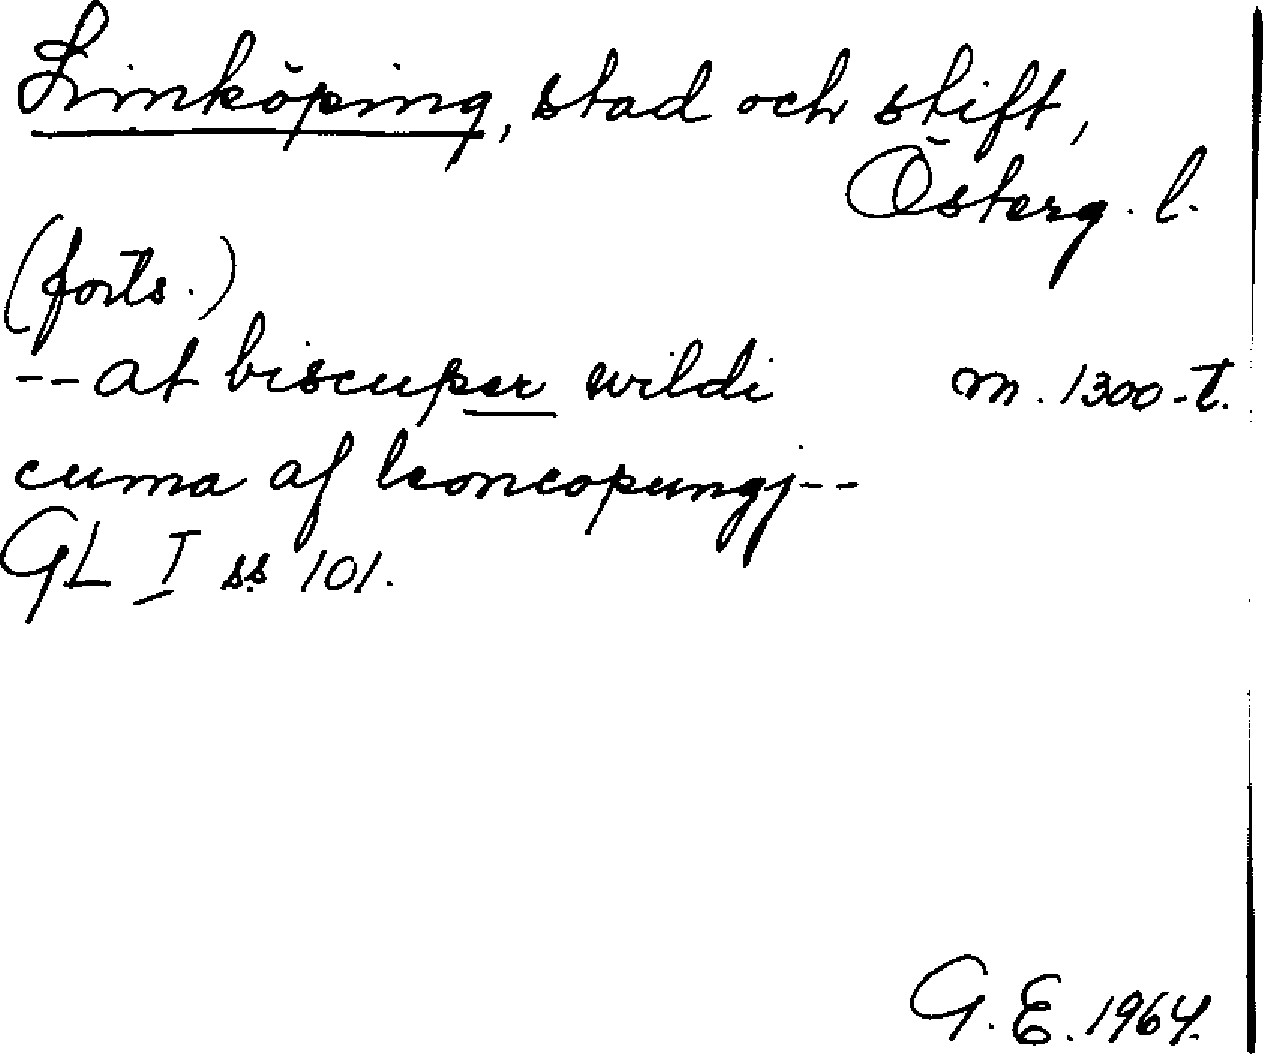 Linköping, stad och stift,
Österg. l.
(forts.)
-- at biscuper wildi m. 1300-t.
cuma af leoncopungj --
GL I ss 101.
G. E. 1964.